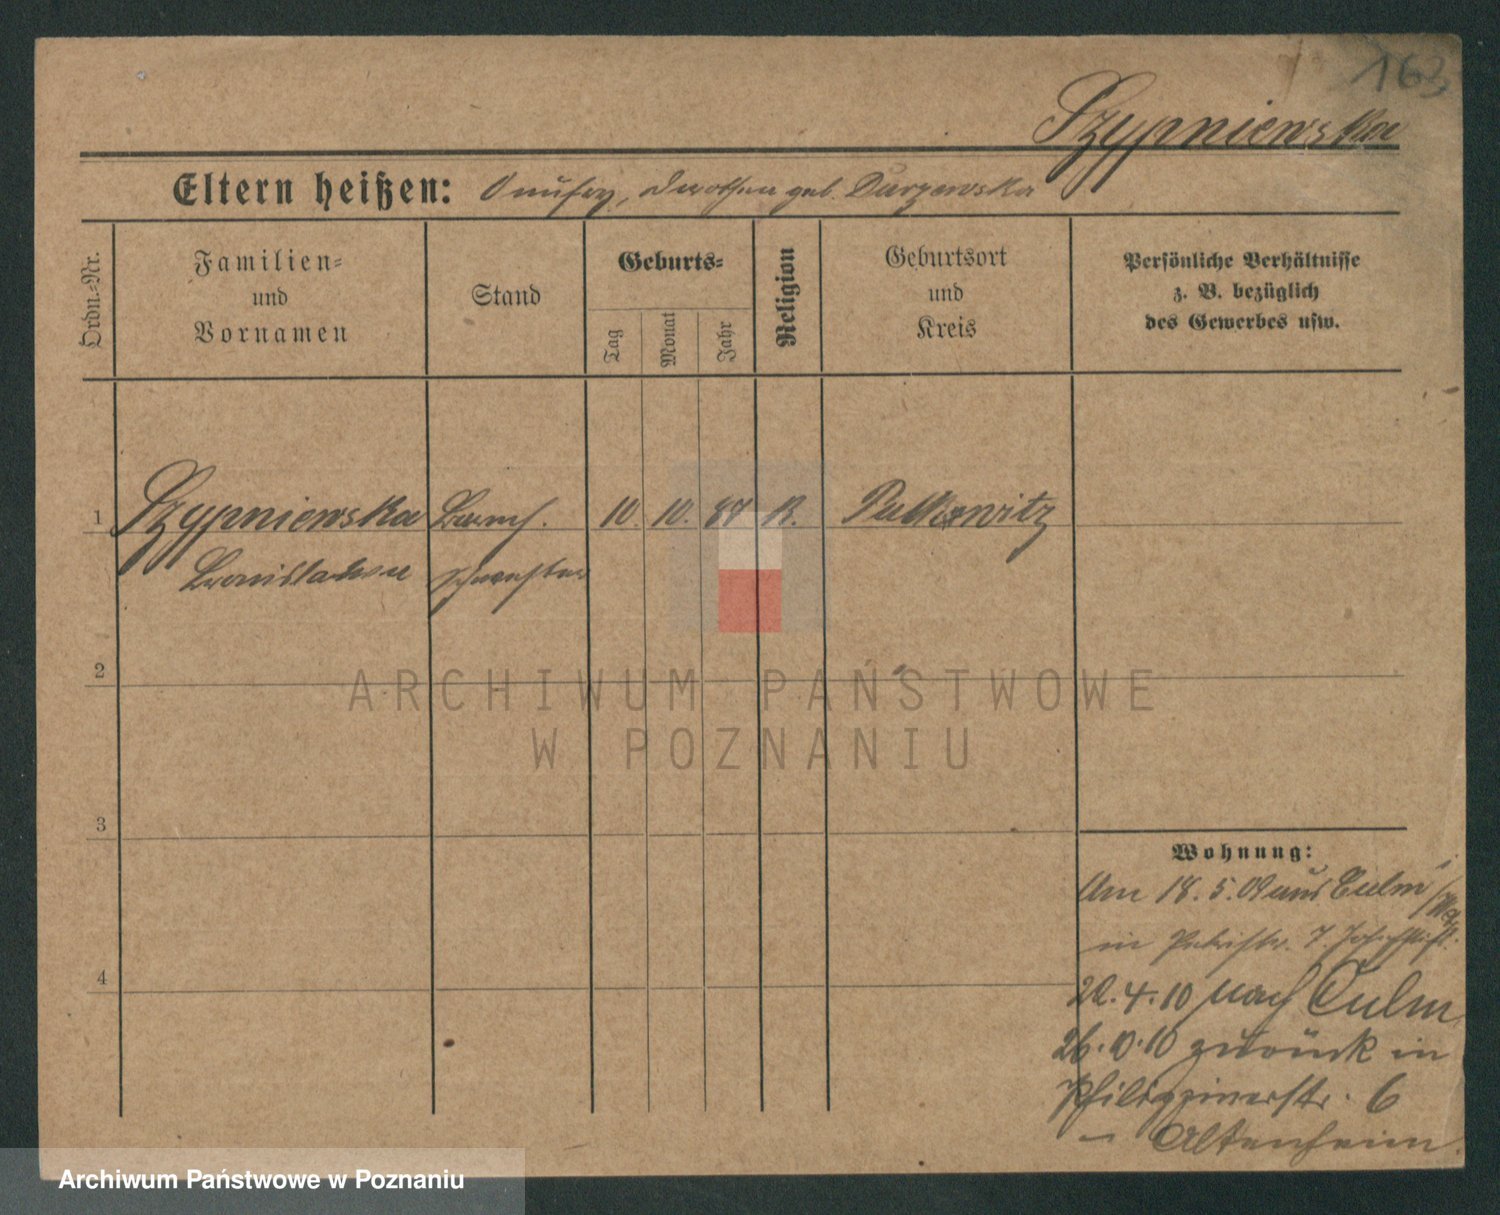 163
Szypniewska
Eltern heißen: Onufry, Dorothea geb. Durzewska
Ordn.-Nr.
Familien-
und
Vornamen
Stand
Geburts-
Tag
Monat
Jahr
Religion
Geburtsort
und
Kreis
Persönliche Verhältnisse
z. B. bezüglich
des Gewerbes usw.
1 Szypniewska Barmh. 10. 10. 87 K.
Bronislawa schwester
2
3
4
Wohnung:
Am 18.5.09 aus Culm
in Petristr. 7. Josephstift.
20.4.10 nach Culm
26.10.10 zurück in
Philippinerstr. 6
- Altenheim.
ARCHIWUM PAŃSTWOWE
W POZNANIU
Archiwum Państwowe w Poznaniu